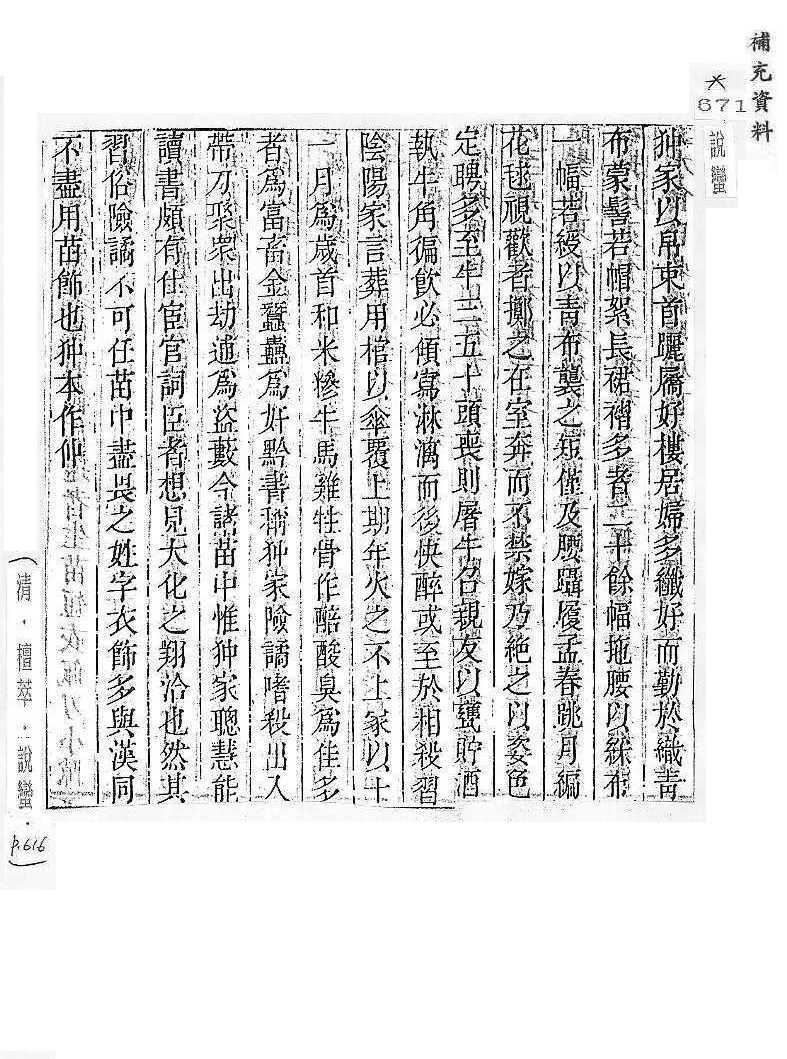 補充資料
*
671
說蠻
狆家以帛束首躧屩好樓居婦多纖好而勤於織青
布蒙髻若帽絮長裙褶多者二十餘幅拖腰以綵布
一幅若綬以青布襲之短僅及腰躡履孟春跳月編
花毬視歡者擲之在室奔而不禁嫁乃絕之以姿色
定聘多至牛三五十頭喪則屠牛召親友以甕貯酒
執牛角徧飲必傾寫淋漓而後快醉或至於相殺習
陰陽家言葬用棺以傘覆上期年火之不上冢以十
一月為歲首和米糝牛馬雞牲骨作醅酸臭為佳多
者為富畜金蠶蠱為奸黔書稱狆家險譎嗜殺出入
帶刀聚衆出劫逋為盜藪今諸苗中惟狆家聰慧能
讀書頗有仕宦官詞臣者想見大化之翔洽也然其
習俗險譎不可任苗中盡畏之姓字衣飾多與漢同
不盡用苗飾也狆本作仲
(清．檀萃．說蠻．p.616)